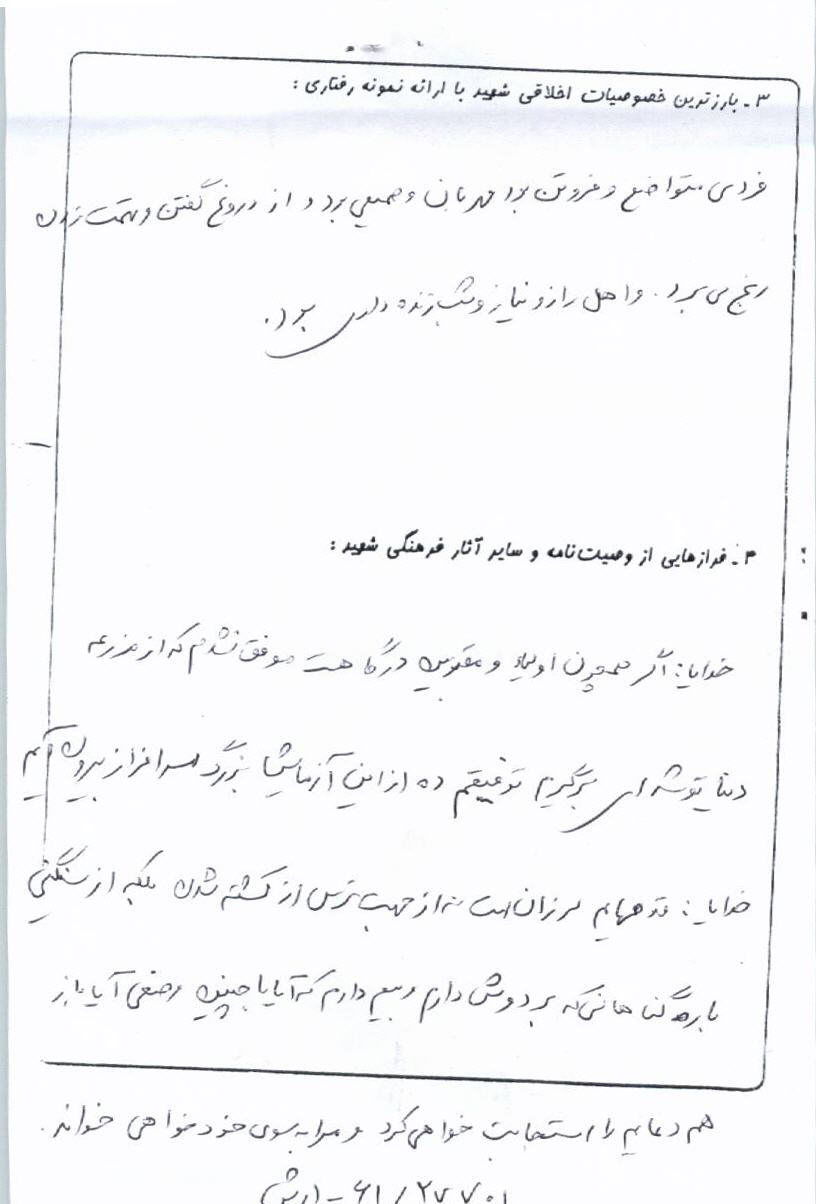 ۳ـ بارزترین خصوصیات اخلاقی شهید با ارائه نمونه رفتاری :
فردی متواضع و فروتن بود مهربان و صمیمی بود و از دروغ گفتن و تهمت زدن
رنج می برد. و اهل راز و نیاز و شب زنده داری بود.
۴ـ فرازهایی از وصیت‌نامه و سایر آثار فرهنگی شهید :
خدایا: اگر همچون اولیاء و مقربین درگاهت موفق نشدم که از مزرعه
دنیا توشه ای برگیرم توفیقم ده از این آزمایش بزرگ سرافراز بیرون آیم
خدایا: قدمهایم لرزان است نه از جهت ترس از کشته شدن بلکه از سنگینی
بار گناهانی که بر دوش دارم و بیم دارم که آیا با چنین وضعی آیا باز
هم دعایم را استجابت خواهی کرد و مرا به سوی خود خواهی خواند.